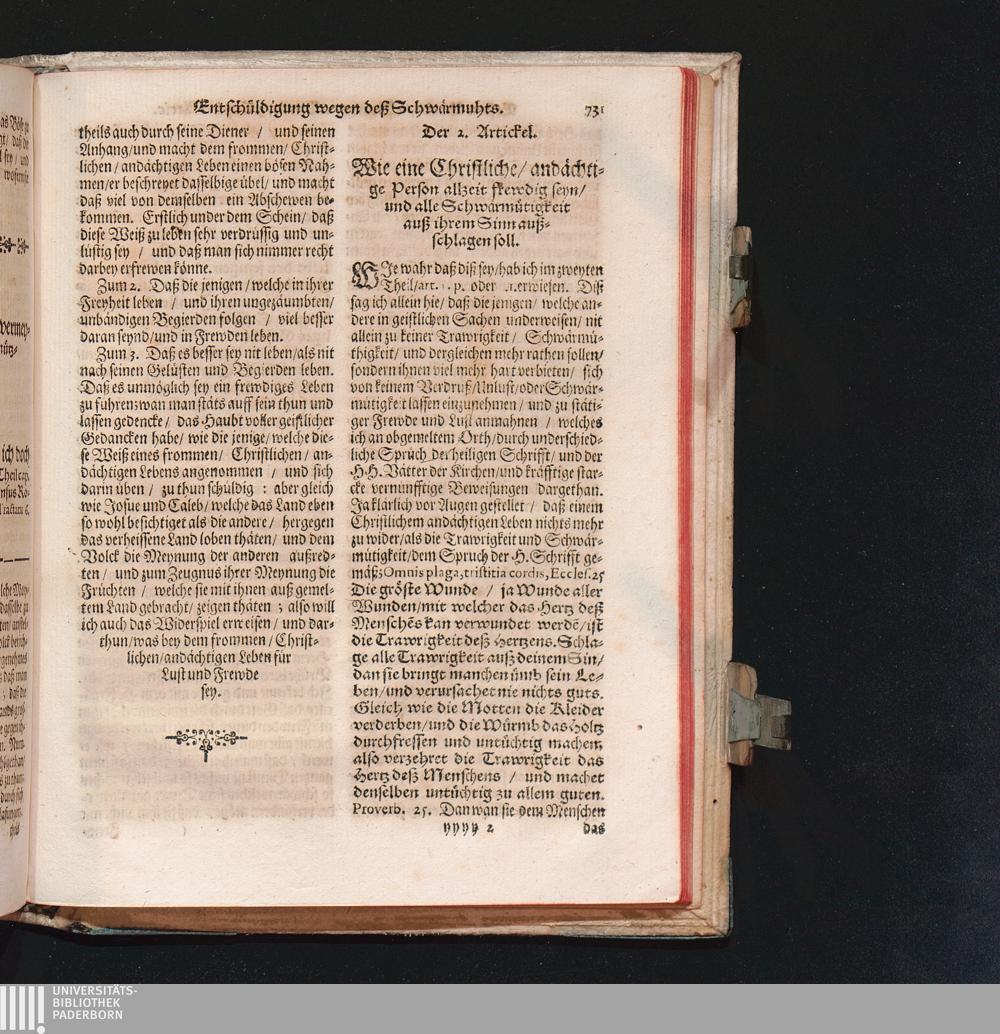 Entschüldigung wegen deß Schwärmuhts. 731
theils auch durch seine Diener / und seinen
Anhang/und macht dem frommen/ Christ-
lichen/ andächtigen Leben einen bösen Nah-
men/er beschreyet dasselbige übel/ und macht
daß viel von demselben ein Abschewen be-
kommen. Erstlich under dem Schein/ daß
diese Weiß zu leben sehr verdrüssig und un-
lüstig sey / und daß man sich nimmer recht
darbey erfrewen könne.
Zum 2. Daß die jenigen/ welche in ihrer
Freyheit leben / und ihren ungezäumbten/
unbändigen Begierden folgen / viel besser
daran seynd/und in Frewden leben.
Zum 3. Daß es besser sey nit leben/als nit
nach seinen Gelüsten und Begierden leben.
Daß es unmöglich sey ein frewdiges Leben
zu führen; wan man stäts auff sein thun und
lassen gedencke/ das Haubt voller geistlicher
Gedancken habe/ wie die jenige/ welche die-
se Weiß eines frommen/ Christlichen/ an-
dächtigen Lebens angenommen / und sich
darin üben / zu thun schüldig : aber gleich
wie Josue und Caleb/ welche das Land eben
so wohl besichtiget als die andere/ hergegen
das verheissene Land loben thäten/ und dem
Volck die Meynung der anderen außred-
ten / und zum Zeugnus ihrer Meynung die
Früchten / welche sie mit ihnen auß gemel-
tem Land gebracht/ zeigen thäten ; also will
ich auch das Widerspiel erweisen/ und dar-
thun/was bey dem frommen/ Christ-
lichen/andächtigen Leben für
Lust und Frewde
sey.
Der 2. Artickel.
Wie eine Christliche/ andächti-
ge Person allzeit frewdig seyn/
und alle Schwärmütigkeit
auß ihrem Sinn auß-
schlagen soll.
WIe wahr daß diß sey/hab ich im zweyten
Theil/art. p. oder erwiesen. Diß
sag ich allein hie/ daß die jenigen/ welche an-
dere in geistlichen Sachen underweisen/ nit
allein zu keiner Trawrigkeit/ Schwärmü-
thigkeit/ und dergleichen mehr rathen sollen/
sondern ihnen viel mehr hart verbieten/ sich
von keinem Verdruß/Unlust/oder Schwär-
mütigkeit lassen einzunehmen/ und zu stäti-
ger Frewde und Lust anmahnen / welches
ich an obgemeltem Orth/durch underschied-
liche Sprüch der heiligen Schrifft/ und der
H.H. Vätter der Kirchen/und kräfftige star-
cke vernünfftige Beweisungen dargethan.
Ja klärlich vor Augen gestellet/ daß einem
Christlichem andächtigen Leben nichts mehr
zu wider/als die Trawrigkeit und Schwär-
mütigkeit/dem Spruch der H. Schrifft ge-
mäß; Omnis plaga, tristitia cordis, Eccles. 25
Die gröste Wunde / ja Wunde aller
Wunden/mit welcher das Hertz deß
Menschẽs kan verwundet werdẽ/ist
die Trawrigkeit deß Hertzens. Schla-
ge alle Trawrigkeit auß deinem Sin/
dan sie bringt manchen ümb sein Le-
ben/und verursachet nie nichts guts.
Gleich wie die Motten die Kleider
verderben/und die Würmb das Holtz
durchfressen und untüchtig machen;
also verzehret die Trawrigkeit das
Hertz deß Menschens / und machet
denselben untüchtig zu allem guten.
Proverb. 25. Dan wan sie dem Menschen
yyyy 2 das
UNIVERSITÄTS-
BIBLIOTHEK
PADERBORN